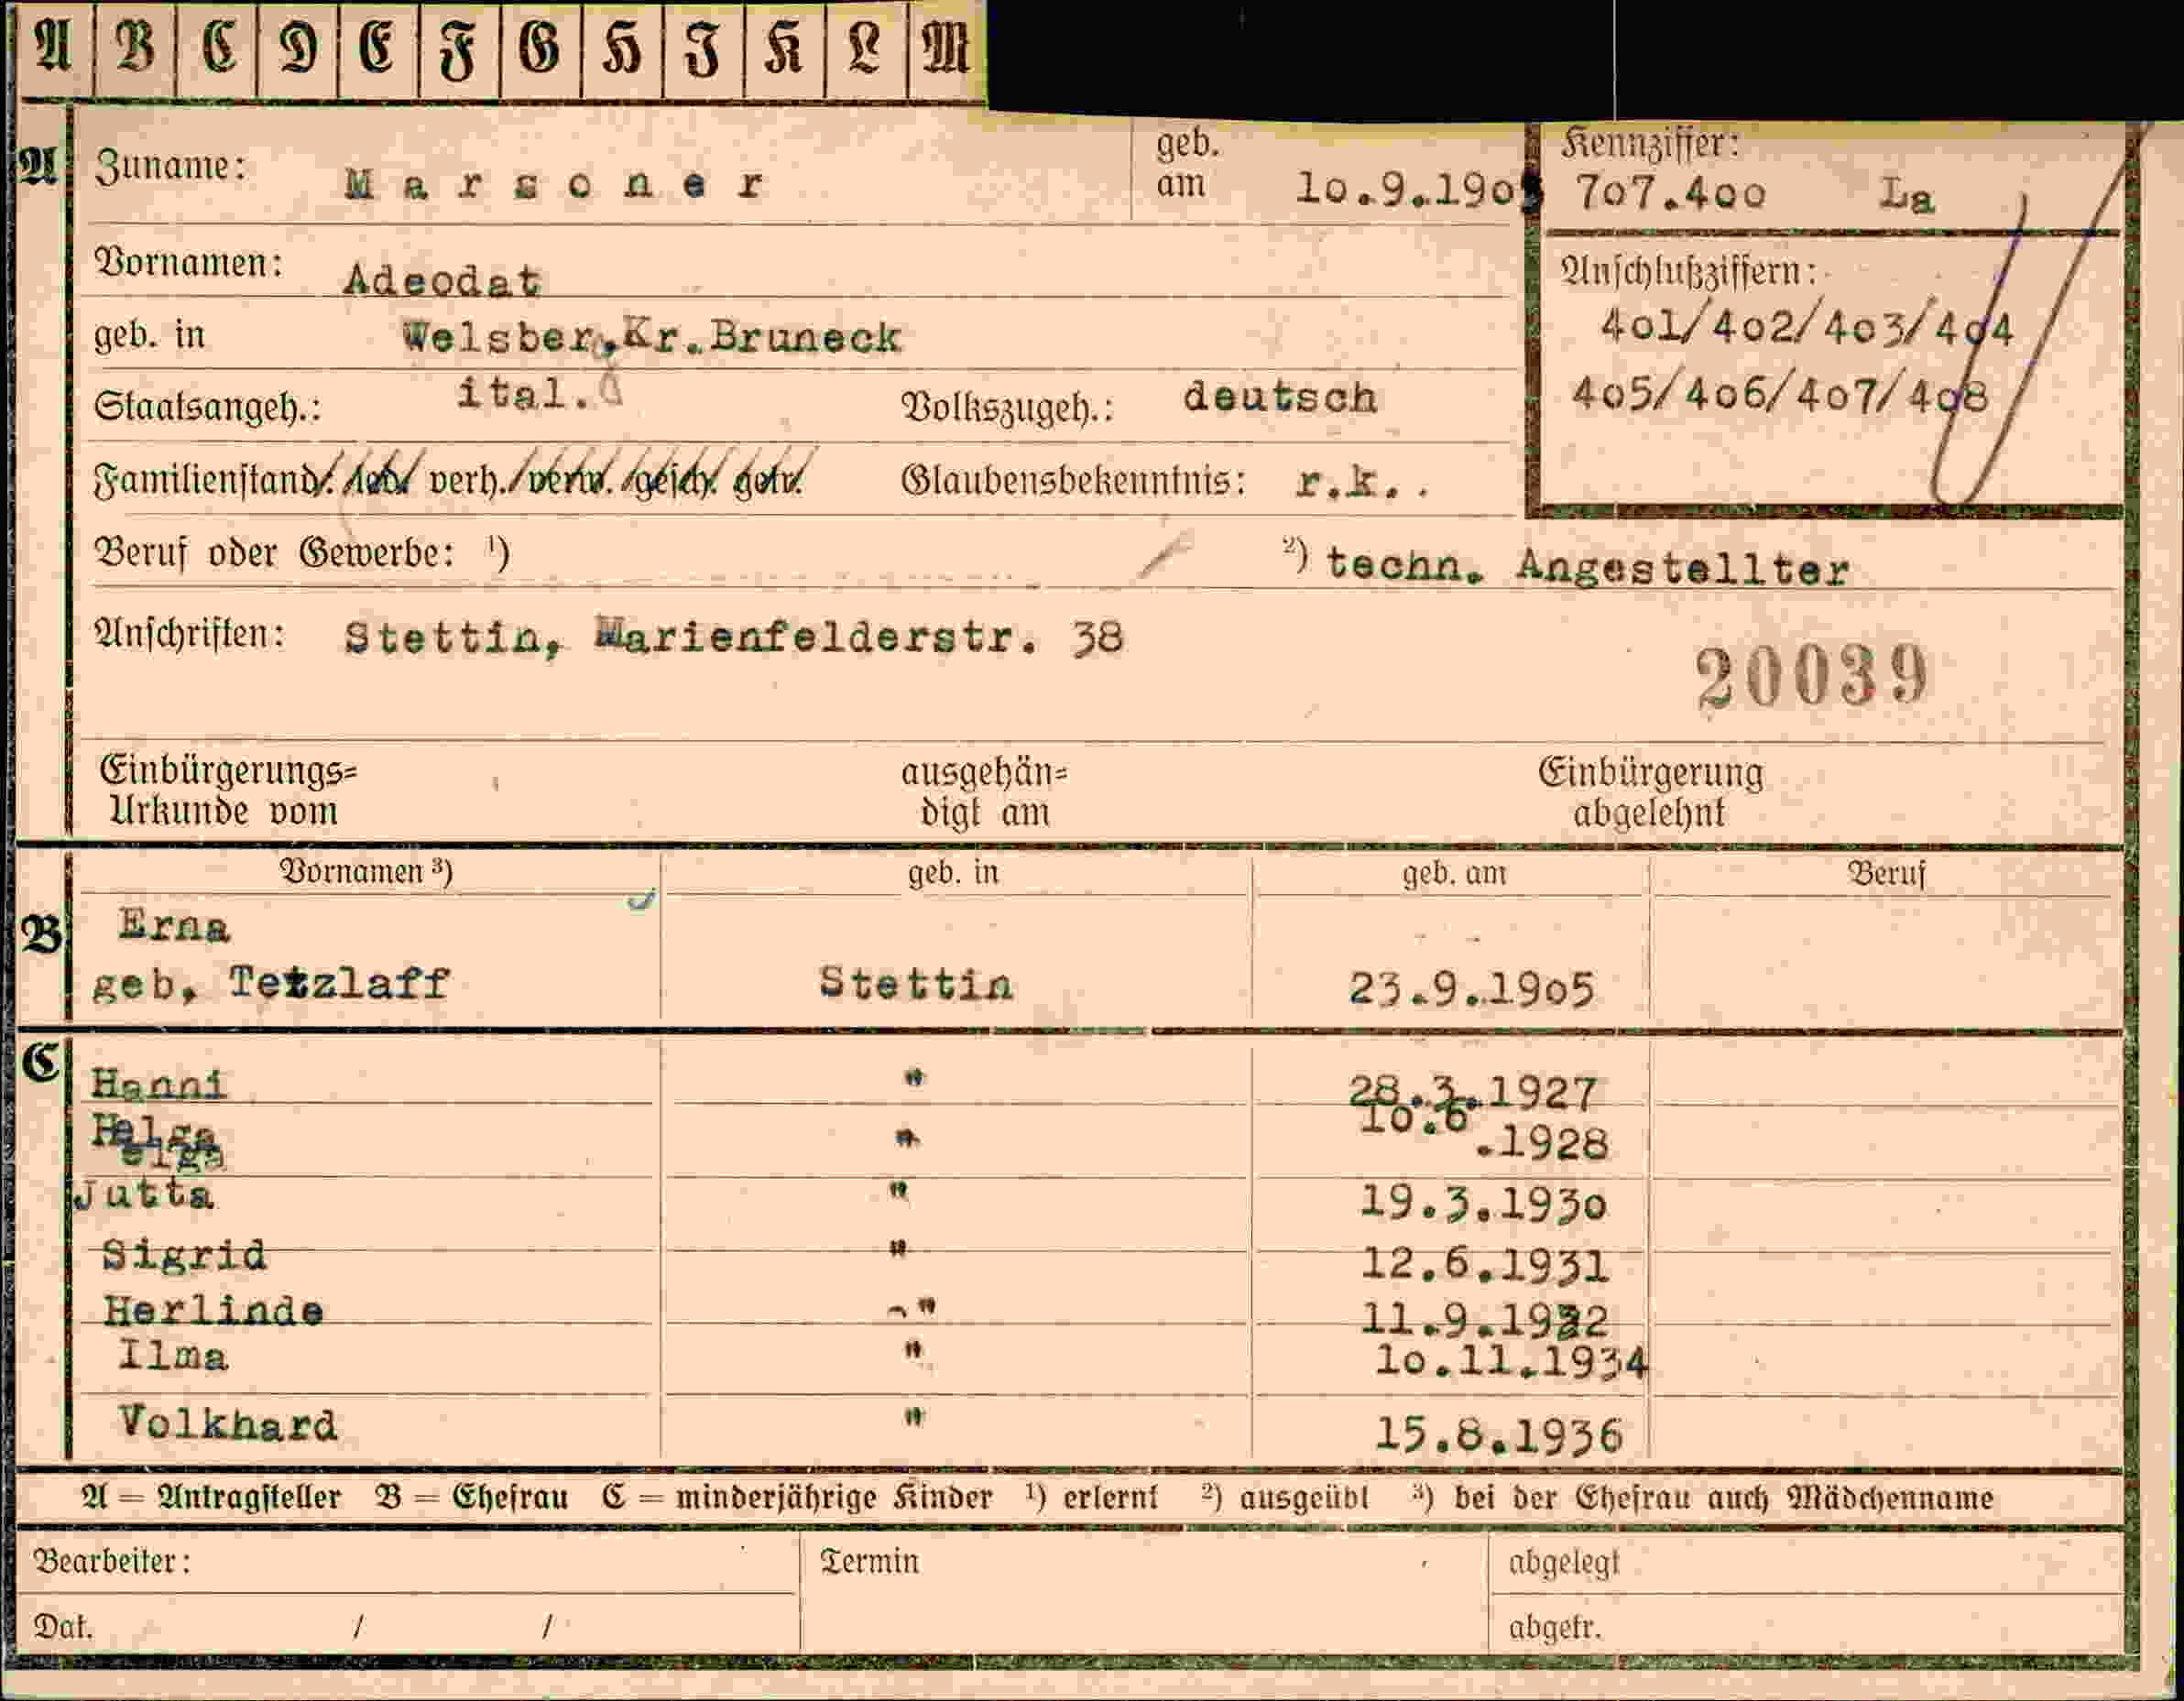 A B C D E F G H J K L M
A Zuname: Marsoner geb. am 10.9.190 Kennziffer: 707.400 La
Vornamen: Adeodat
geb. in Welsber,Kr.Bruneck Anschlußziffern: 401/402/403/404
Staatsangeh.: ital. Volkszugeh.: deutsch 405/406/407/408
Familienstand: led. verh. verw. gesch. getr. Glaubensbekenntnis: r.k. .
Beruf oder Gewerbe: ¹) ²) techn. Angestellter
Anschriften: Stettin, Marienfelderstr. 38
20039
Einbürgerungs= ausgehän= Einbürgerung
Urkunde vom digt am abgelehnt
Vornamen ³) geb. in geb. am Beruf
B Erna
geb. Tetzlaff Stettin 23.9.1905
C Hanni " 28.3.1927
Helga " 10.6.1928
Jutta " 19.3.1930
Sigrid " 12.6.1931
Herlinde -" 11.9.1932
Ilma " 10.11.1934
Volkhard " 15.8.1936
A = Antragsteller B = Ehefrau C = minderjährige Kinder ¹) erlernt ²) ausgeübt ³) bei der Ehefrau auch Mädchenname
Bearbeiter: Termin abgelegt
Dat. / / abgetr.